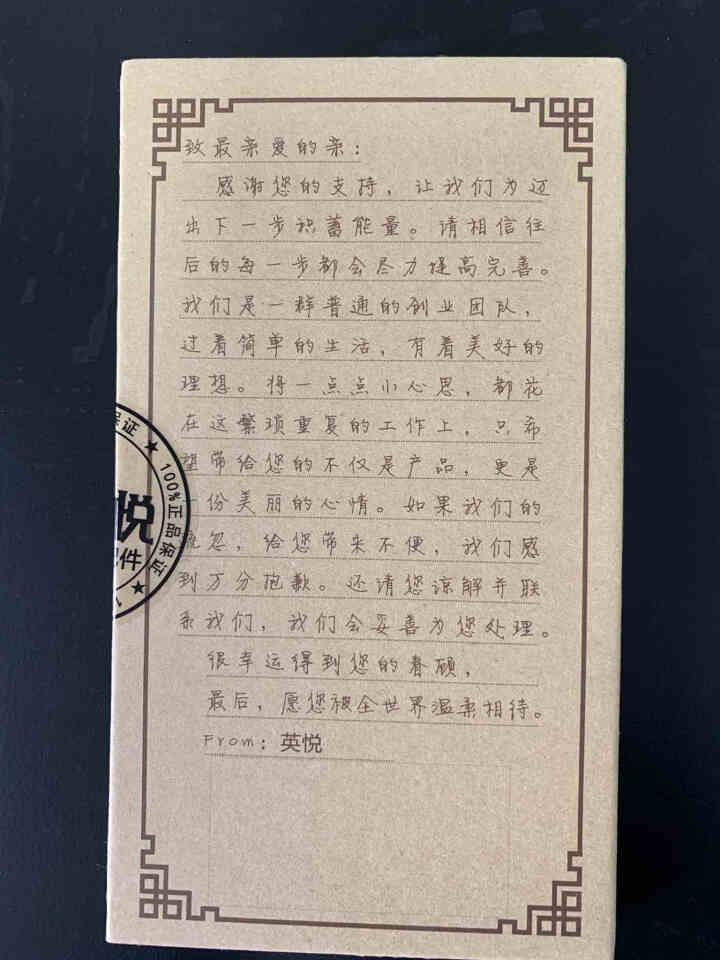 致最亲爱的亲：
感谢您的支持，让我们为迈
出下一步积蓄能量。请相信往
后的每一步都会尽力提高完善。
我们是一群普通的创业团队，
过着简单的生活，有着美好的
理想。将一点点小心思，都花
在这繁琐重复的工作上，只希
望带给您的不仅是产品，更是
一份美丽的心情。如果我们的
疏忽，给您带来不便，我们感
到万分抱歉。还请您谅解并联
系我们，我们会妥善为您处理。
很幸运得到您的眷顾，
最后，愿您被全世界温柔相待。
From：英悦
保证
100%正品保证
悦
配件